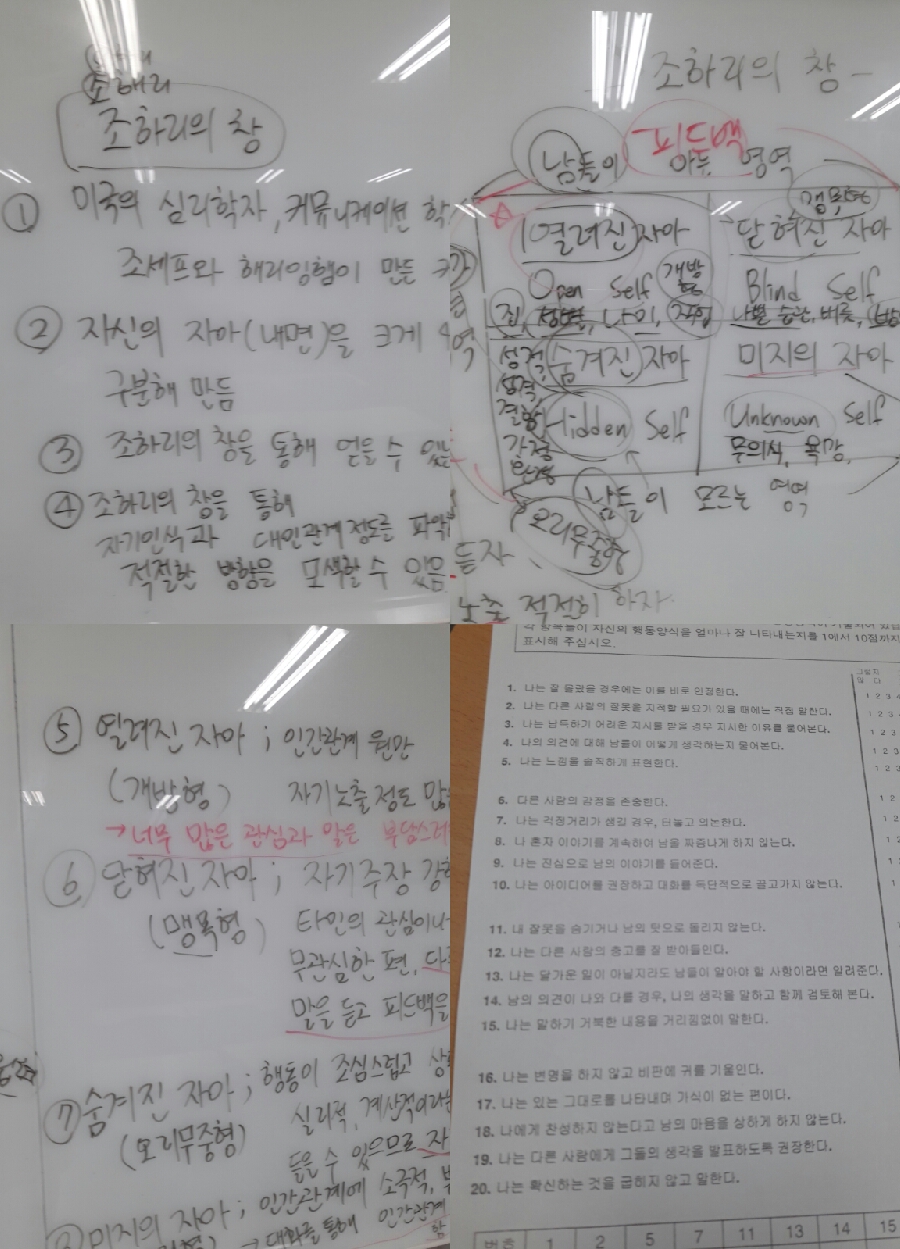 조해리
조하리의 창
① 미국의 심리학자, 커뮤니케이션 학
조세프와 해리잉햄이 만든
② 자신의 자아(내면)을 크게 4
구분해 만듬
③ 조하리의 창을 통해 얻을 수 있는
④ 조하리의 창을 통해
자기인식과 대인관계 정도를 파악
적절한 방향을 모색할 수 있음
조하리의 창 -
피드백
남들이 아는 영역
열려진 자아
개방형
Open Self
집, 성별, 나이, 직업
닫혀진 자아
Blind Self
나쁜 습관, 버릇,
숨겨진 자아
Hidden Self
성격,
미지의 자아
Unknown Self
무의식, 욕망,
남들이 모르는 영역
오리무중형
듣자
노출 적절히 하자
⑤ 열려진 자아 ; 인간관계 원만
(개방형) 자기노출정도
→너무 많은 관심과 말은 부담스러
⑥ 닫혀진 자아 ; 자기주장 강
(맹목형) 타인의 관심이나
무관심한 편,
말을 듣고 피드백을
⑦ 숨겨진 자아 ; 행동이 조심스럽고
(오리무중형) 실리적, 계산적이라는
들을 수 있으므로
미지의 자아 ; 인간관계에 소극적,
→ 대화를 통해 인간관계
각 항목들이 자신의 행동양식을 얼마나 잘 나타내는지를 1에서 10점까지
표시해 주십시오.
1. 나는 잘 몰랐을 경우에는 이를 바로 인정한다.
2. 나는 다른 사람의 잘못을 지적할 필요가 있을 때에는 직접 말한다.
3. 나는 납득하기 어려운 지시를 받을 경우 지시한 이유를 물어본다.
4. 나의 의견에 대해 남들이 어떻게 생각하는지 물어본다.
5. 나는 느낌을 솔직하게 표현한다.
6. 다른 사람의 감정을 존중한다.
7. 나는 걱정거리가 생길 경우, 터놓고 의논한다.
8. 나 혼자 이야기를 계속하여 남을 짜증나게 하지 않는다.
9. 나는 진심으로 남의 이야기를 들어준다.
10. 나는 아이디어를 권장하고 대화를 독단적으로 끌고가지 않는다.
11. 내 잘못을 숨기거나 남의 탓으로 돌리지 않는다.
12. 나는 다른 사람의 충고를 잘 받아들인다.
13. 나는 달가운 일이 아닐지라도 남들이 알아야 할 사항이라면 알려준다.
14. 남의 의견이 나와 다를 경우, 나의 생각을 말하고 함께 검토해 본다.
15. 나는 말하기 거북한 내용을 거리낌없이 말한다.
16. 나는 변명을 하지 않고 비판에 귀를 기울인다.
17. 나는 있는 그대로를 나타내며 가식이 없는 편이다.
18. 나에게 찬성하지 않는다고 남의 마음을 상하게 하지 않는다.
19. 나는 다른 사람에게 그들의 생각을 발표하도록 권장한다.
20. 나는 확신하는 것을 굽히지 않고 말한다.
번호 1 2 5 7 11 13 14 15